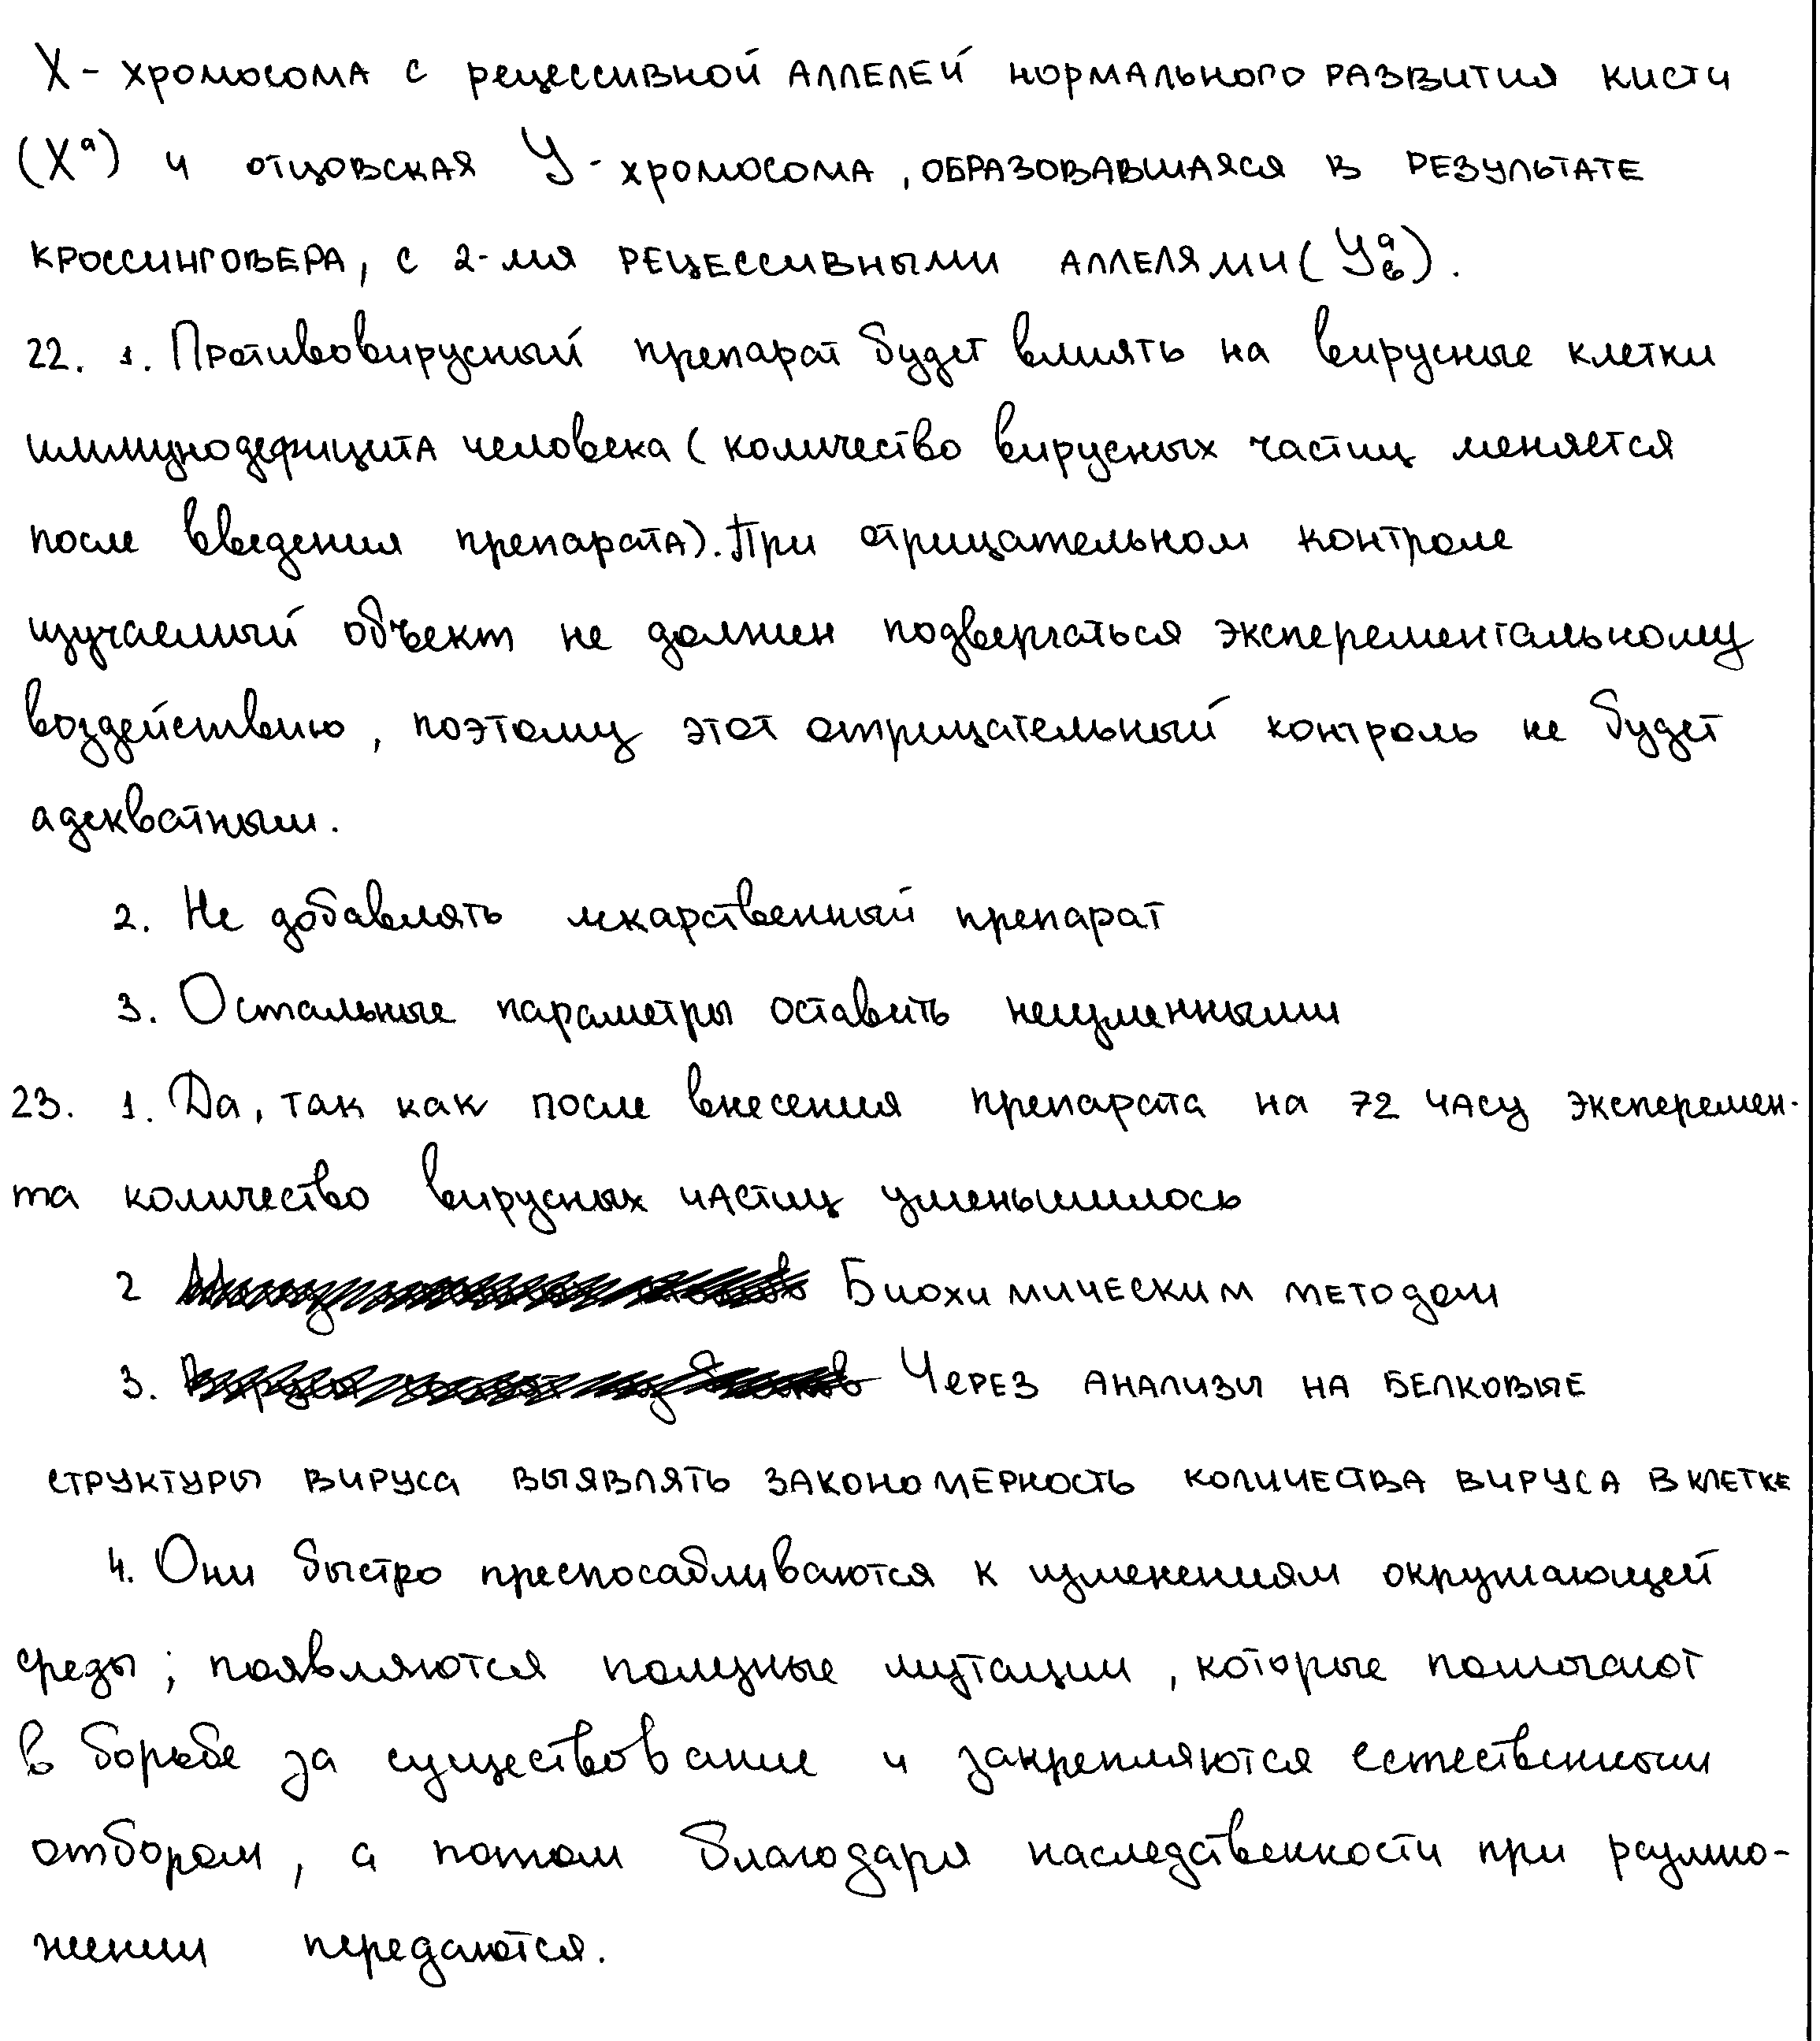 X - хромосома с рецессивной аллелей нормального развития кисти
(Xᵃ) и отцовская У - хромосома, образовавшаяся в результате
кроссинговера, с 2-мя рецессивными аллелями (Уᵃв).
22. 1. Противовирусный препарат будет влиять на вирусные клетки
иммунодефицита человека (количество вирусных частиц меняется
после введения препарата). При отрицательном контроле
изучаемый объект не должен подвергаться эксперементальному
воздействию, поэтому этот отрицательный контроль не будет
адекватным.
2. Не добавлять лекарственный препарат
3. Остальные параметры оставить неизменными
23. 1. Да, так как после внесения препарата на 72 часу эксперемен-
та количество вирусных частиц уменьшилось
2 Биохимическим методом
3. Через анализы на белковые
структуры вируса выявлять закономерность количества вируса в клетке
4. Они быстро преспосабливаются к изменениям окружающей
среды; появляются полезные мутации, которые помогают
в борьбе за существование и закрепляются естественным
отбором, а потом благодаря наследственности при размно-
жении передаются.